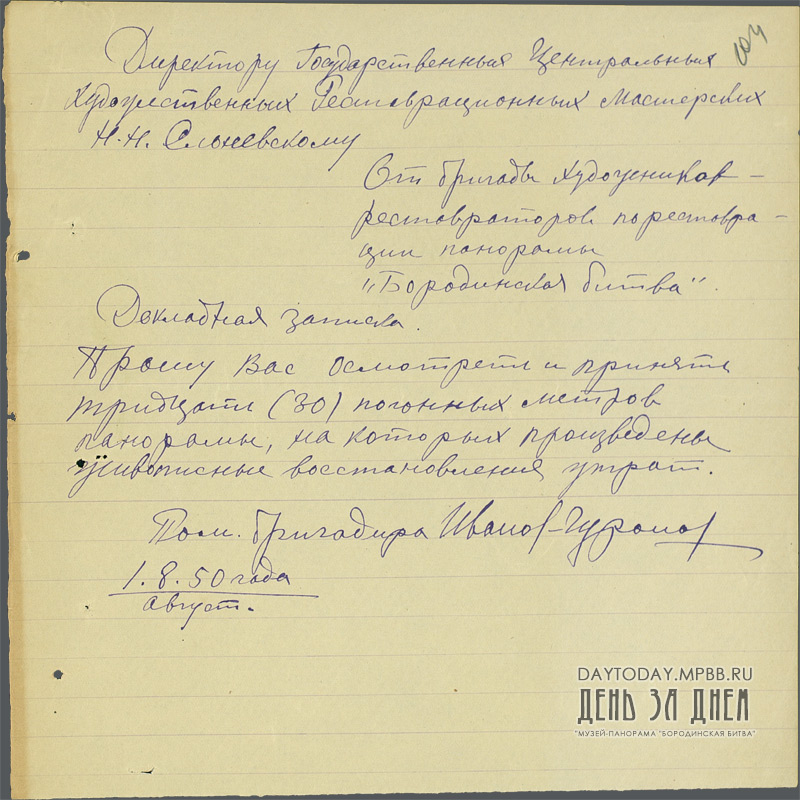 104
Директору Государственных Центральных
Художественных Реставрационных Мастерских
Н.Н. Слоневскому
От бригады художников –
реставраторов по реставра –
ции панорамы
"Бородинская битва".
Докладная записка.
Прошу Вас осмотреть и принять
тридцать (30) погонных метров
панорамы, на которых произведены
живописные восстановления утрат.
Пом. бригадира Иванов-Чуронов
1.8.50 года
август.
DAYTODAY.MPBB.RU
ДЕНЬ ЗА ДНЕМ
"МУЗЕЙ-ПАНОРАМА "БОРОДИНСКАЯ БИТВА"